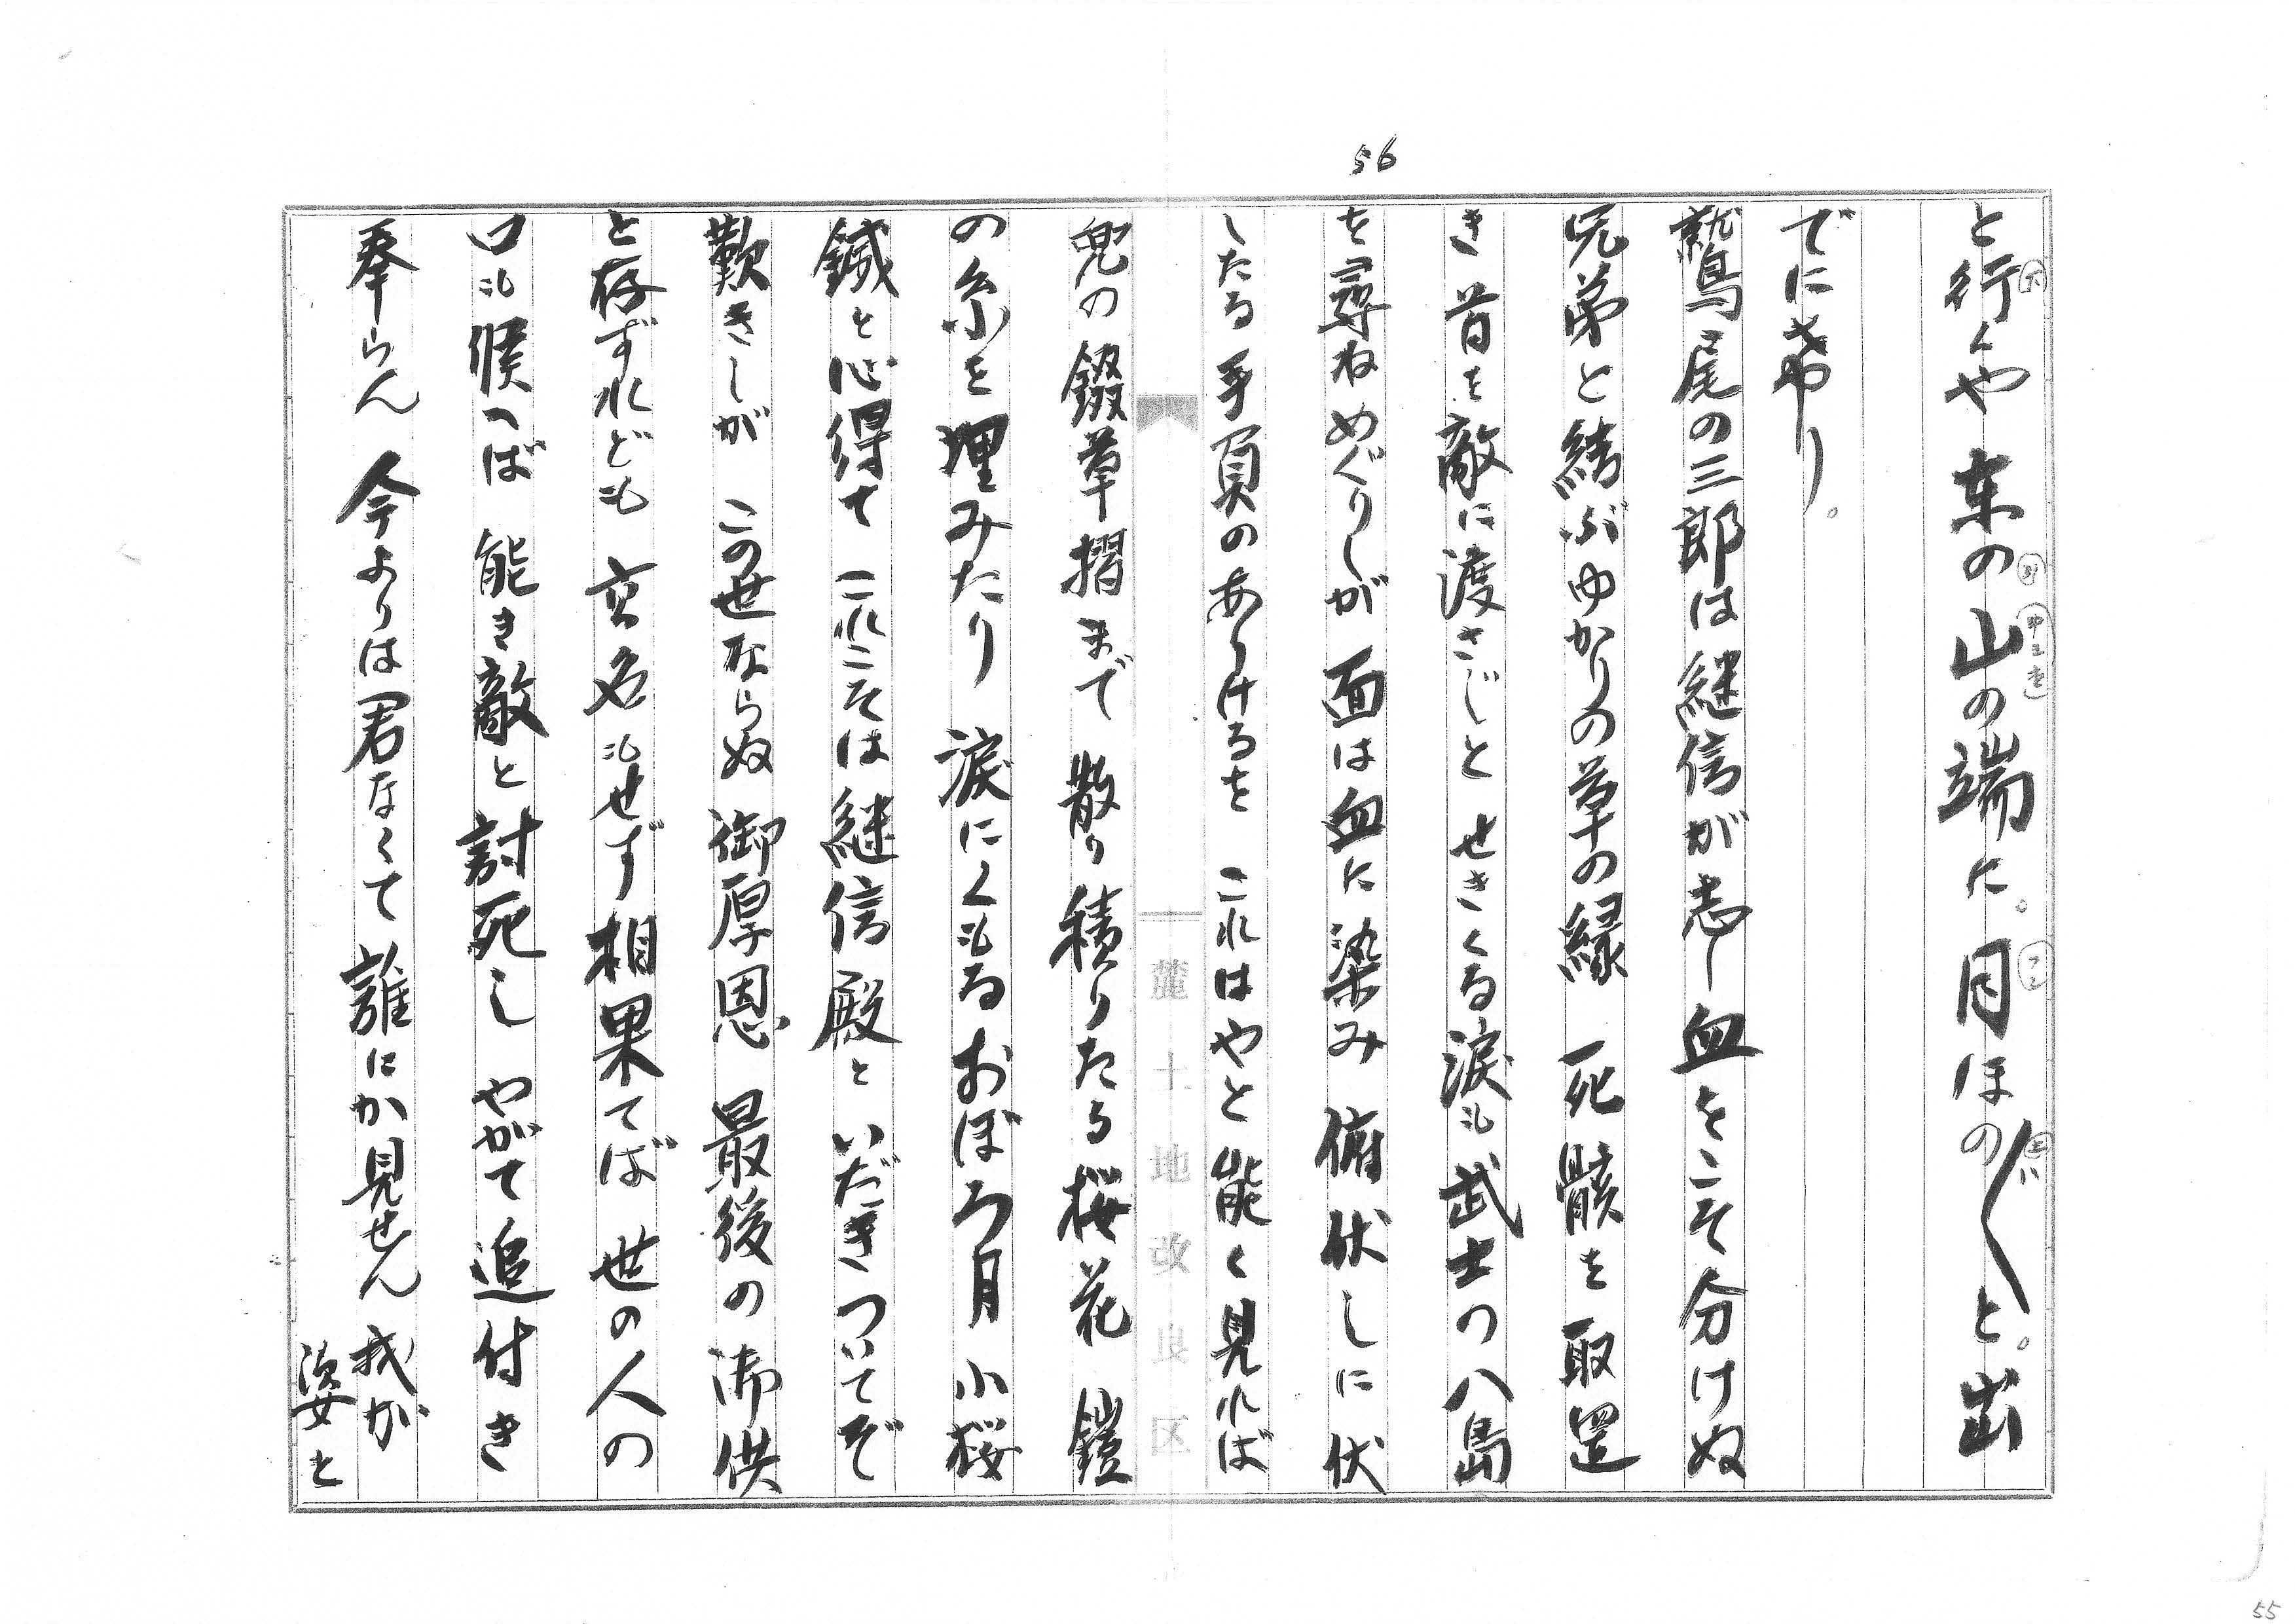 56
と行くや 東の山の端に。月ほの〴〵と。出
でにけり。
鷲尾の三郎は継信が志し血をこそ分けぬ
兄弟と結ぶゆかりの草の縁 死骸を取置
き 首を敵に渡さじと せきくる涙も武士の八島
を尋ねめぐりしが 面は血に染み 俯伏しに伏
したる手負のありけるを これはやと能く見れば
兜の錣草摺まで 散り積りたる桜花 鎧
の糸を埋みたり 涙にくもるおぼろ月 小桜
鍼と心得て これこそは継信殿と いだきついてぞ
歎きしが この世ならぬ 御厚恩 最後の御供
と存ずれども 高名もせず相果てば 世の人の
口も候へば 能き敵と討死し やがて追付き
奉らん 今よりは君なくて 誰にか見せん 我が
姿を
麓土地改良区
55